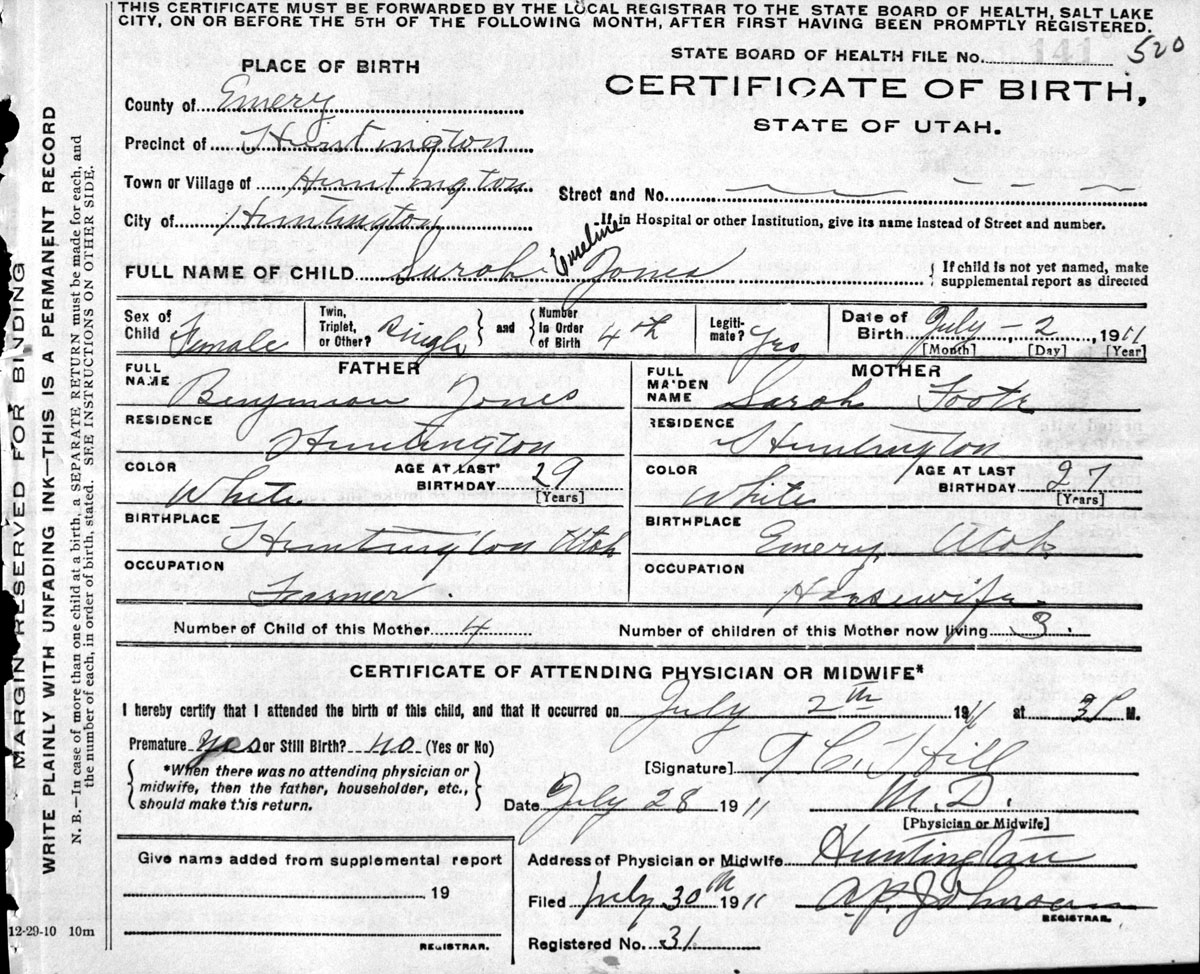 THIS CERTIFICATE MUST BE FORWARDED BY THE LOCAL REGISTRAR TO THE STATE BOARD OF HEALTH, SALT LAKE
CITY, ON OR BEFORE THE 5TH OF THE FOLLOWING MONTH, AFTER FIRST HAVING BEEN PROMPTLY REGISTERED.
STATE BOARD OF HEALTH FILE No. 141 520
PLACE OF BIRTH
CERTIFICATE OF BIRTH,
STATE OF UTAH.
County of Emery
Precinct of Huntington
Town or Village of Huntington
Street and No.
City of Huntington
If in Hospital or other Institution, give its name instead of Street and number.
FULL NAME OF CHILD Sarah Emeline Jones
{ If child is not yet named, make
supplemental report as directed
Sex of Child Female
Twin, Triplet, or Other? Single } and { Number in Order of Birth 4th
Legiti- mate? Yes
Date of Birth July - 2, 1911
[Month] [Day] [Year]
FATHER
FULL NAME Benjmian Jones
RESIDENCE Huntington
COLOR White
AGE AT LAST BIRTHDAY 29 [Years]
BIRTHPLACE Huntington Utah
OCCUPATION Farmer.
MOTHER
FULL MAIDEN NAME Sarah Foote
RESIDENCE Huntington
COLOR White
AGE AT LAST BIRTHDAY 27 [Years]
BIRTHPLACE Emery Utah
OCCUPATION Housewife
Number of Child of this Mother 4
Number of children of this Mother now living 3.
CERTIFICATE OF ATTENDING PHYSICIAN OR MIDWIFE*
I hereby certify that I attended the birth of this child, and that it occurred on July 2th 1911 at 3 P M.
Premature yes or Still Birth? no (Yes or No)
{ *When there was no attending physician or
midwife, then the father, householder, etc.,
should make this return. }
[Signature] T C. Hill
Date July 28 1911 M.D.
[Physician or Midwife]
Give name added from supplemental report
19
REGISTRAR.
Address of Physician or Midwife Huntington
Filed July 30th 1911 A.P. Johnson
REGISTRAR.
Registered No. 31
12-29-10 10m
MARGIN RESERVED FOR BINDING
WRITE PLAINLY WITH UNFADING INK—THIS IS A PERMANENT RECORD
N. B.—In case of more than one child at a birth, a SEPARATE RETURN must be made for each, and
the number of each, in order of birth, stated. SEE INSTRUCTIONS ON OTHER SIDE.